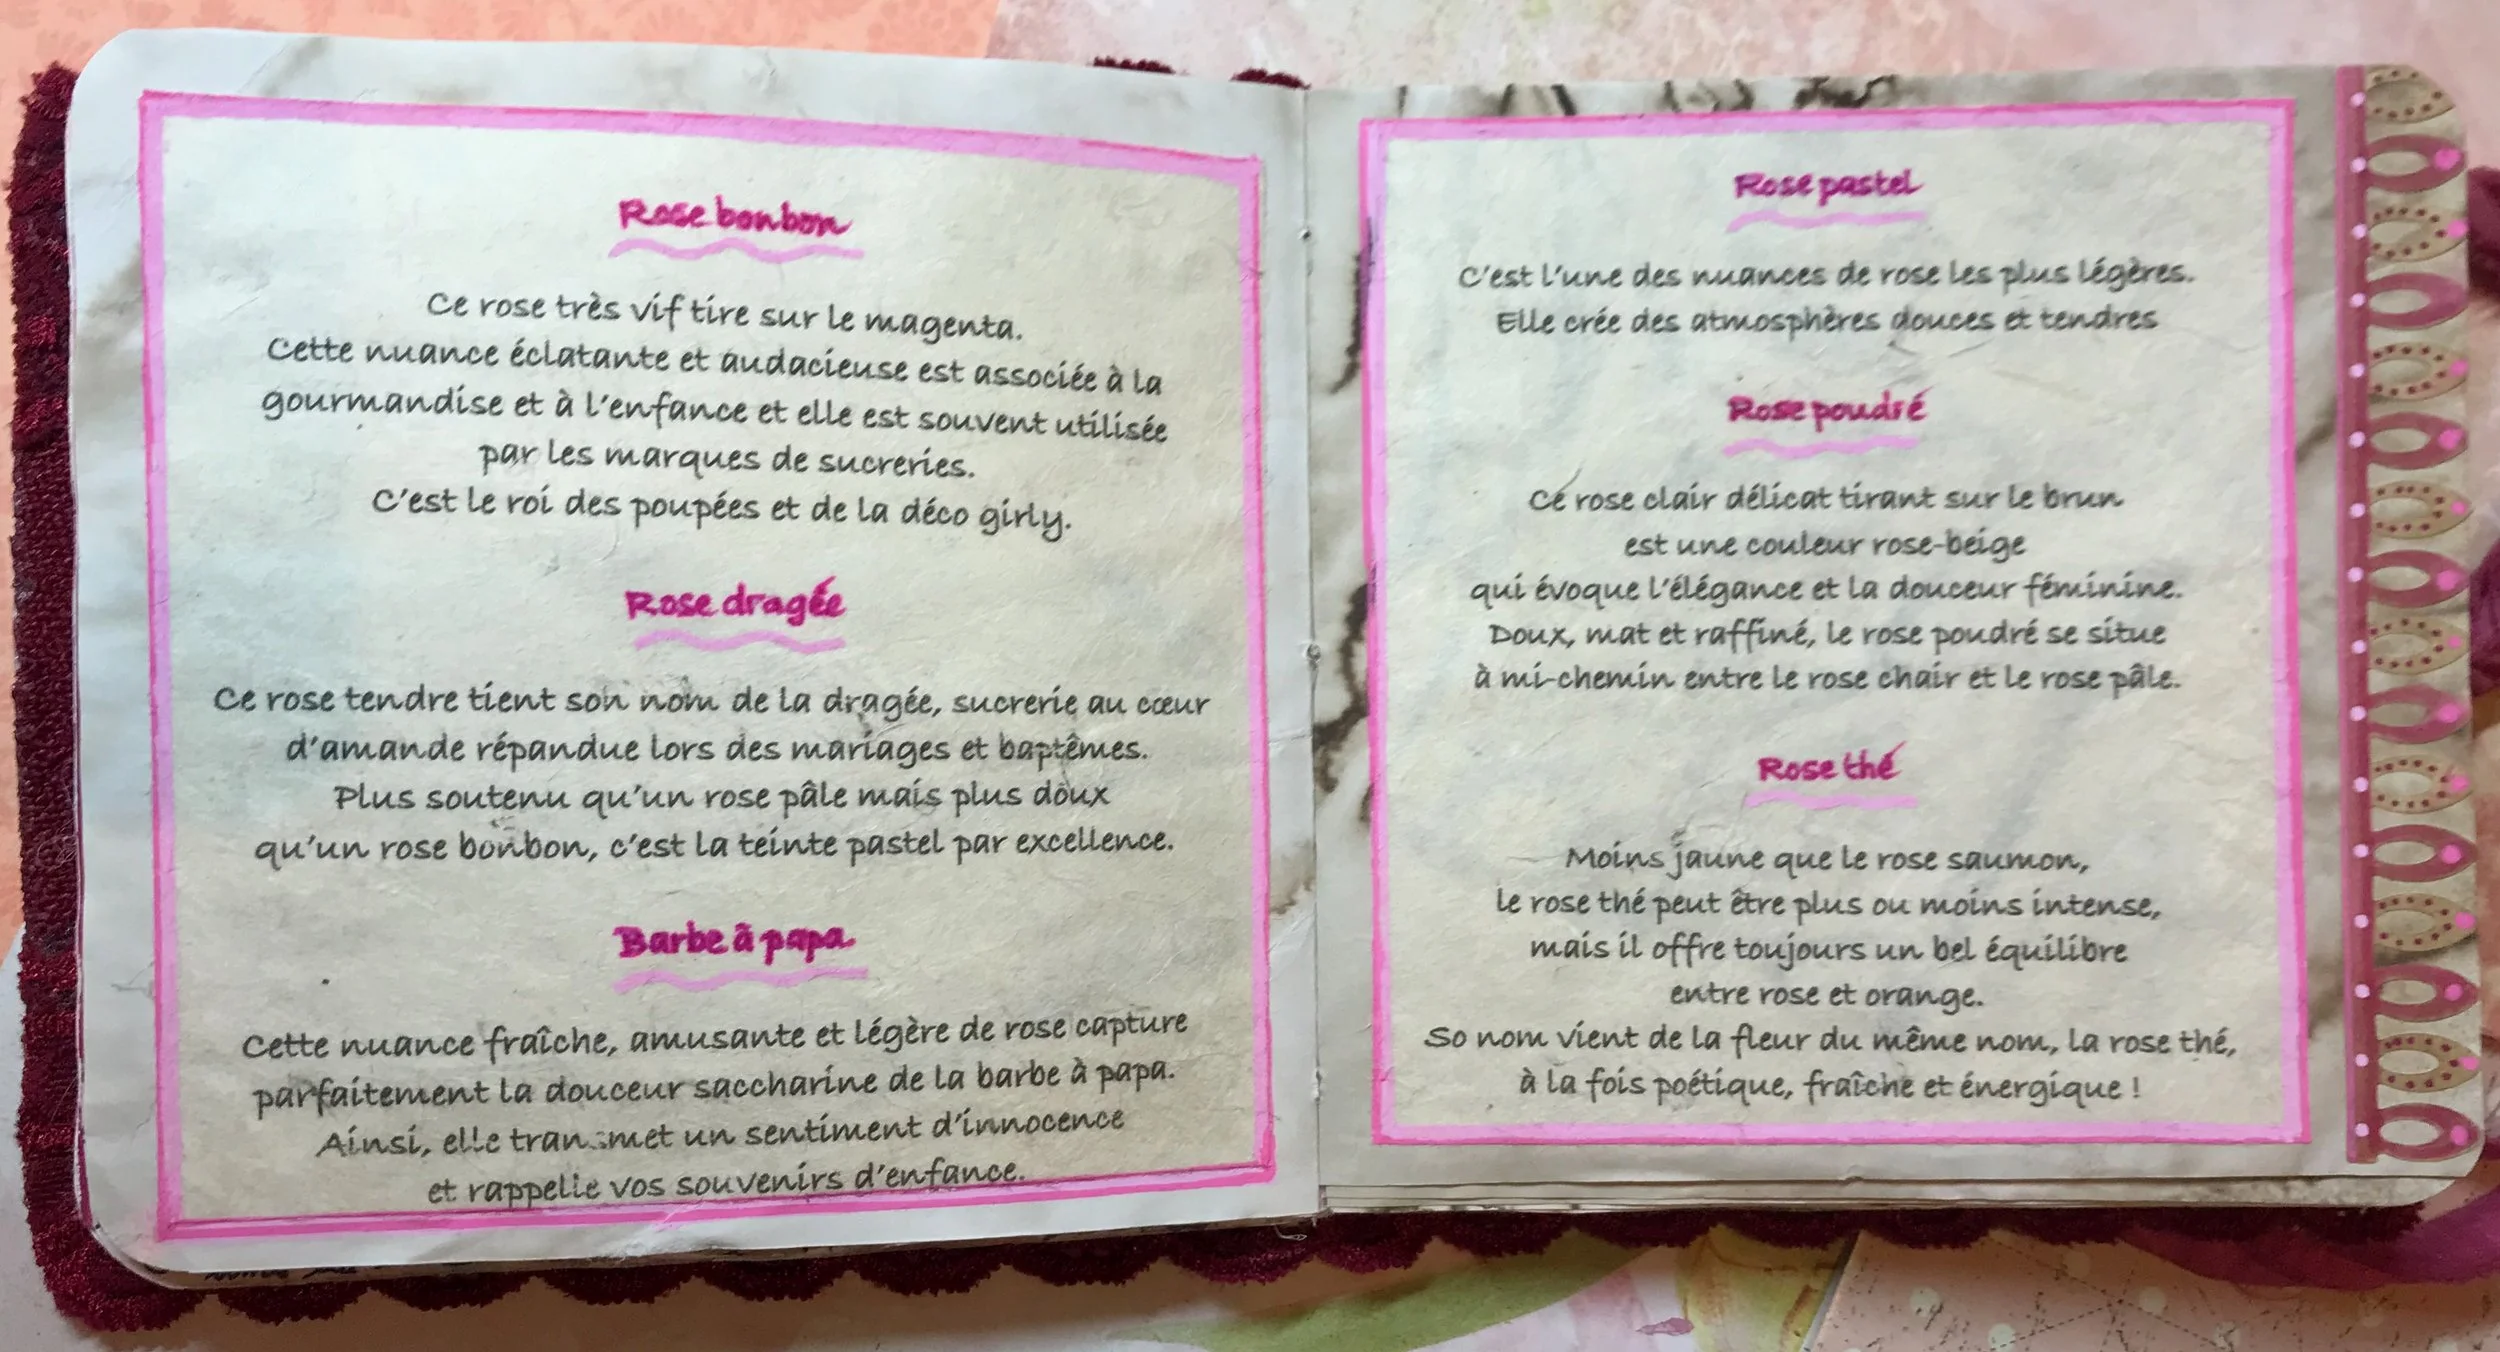 Rose bonbon
Ce rose très vif tire sur le magenta.
Cette nuance éclatante et audacieuse est associée à la
gourmandise et à l'enfance et elle est souvent utilisée
par les marques de sucreries.
C'est le roi des poupées et de la déco girly.
Rose dragée
Ce rose tendre tient son nom de la dragée, sucrerie au cœur
d'amande répandue lors des mariages et baptêmes.
Plus soutenu qu'un rose pâle mais plus doux
qu'un rose bonbon, c'est la teinte pastel par excellence.
Barbe à papa
Cette nuance fraîche, amusante et légère de rose capture
parfaitement la douceur saccharine de la barbe à papa.
Ainsi, elle transmet un sentiment d'innocence
et rappelle vos souvenirs d'enfance.
Rose pastel
C'est l'une des nuances de rose les plus légères.
Elle crée des atmosphères douces et tendres
Rose poudré
Ce rose clair délicat tirant sur le brun
est une couleur rose-beige
qui évoque l'élégance et la douceur féminine.
Doux, mat et raffiné, le rose poudré se situe
à mi-chemin entre le rose chair et le rose pâle.
Rose thé
Moins jaune que le rose saumon,
le rose thé peut être plus ou moins intense,
mais il offre toujours un bel équilibre
entre rose et orange.
So nom vient de la fleur du même nom, la rose thé,
à la fois poétique, fraîche et énergique !